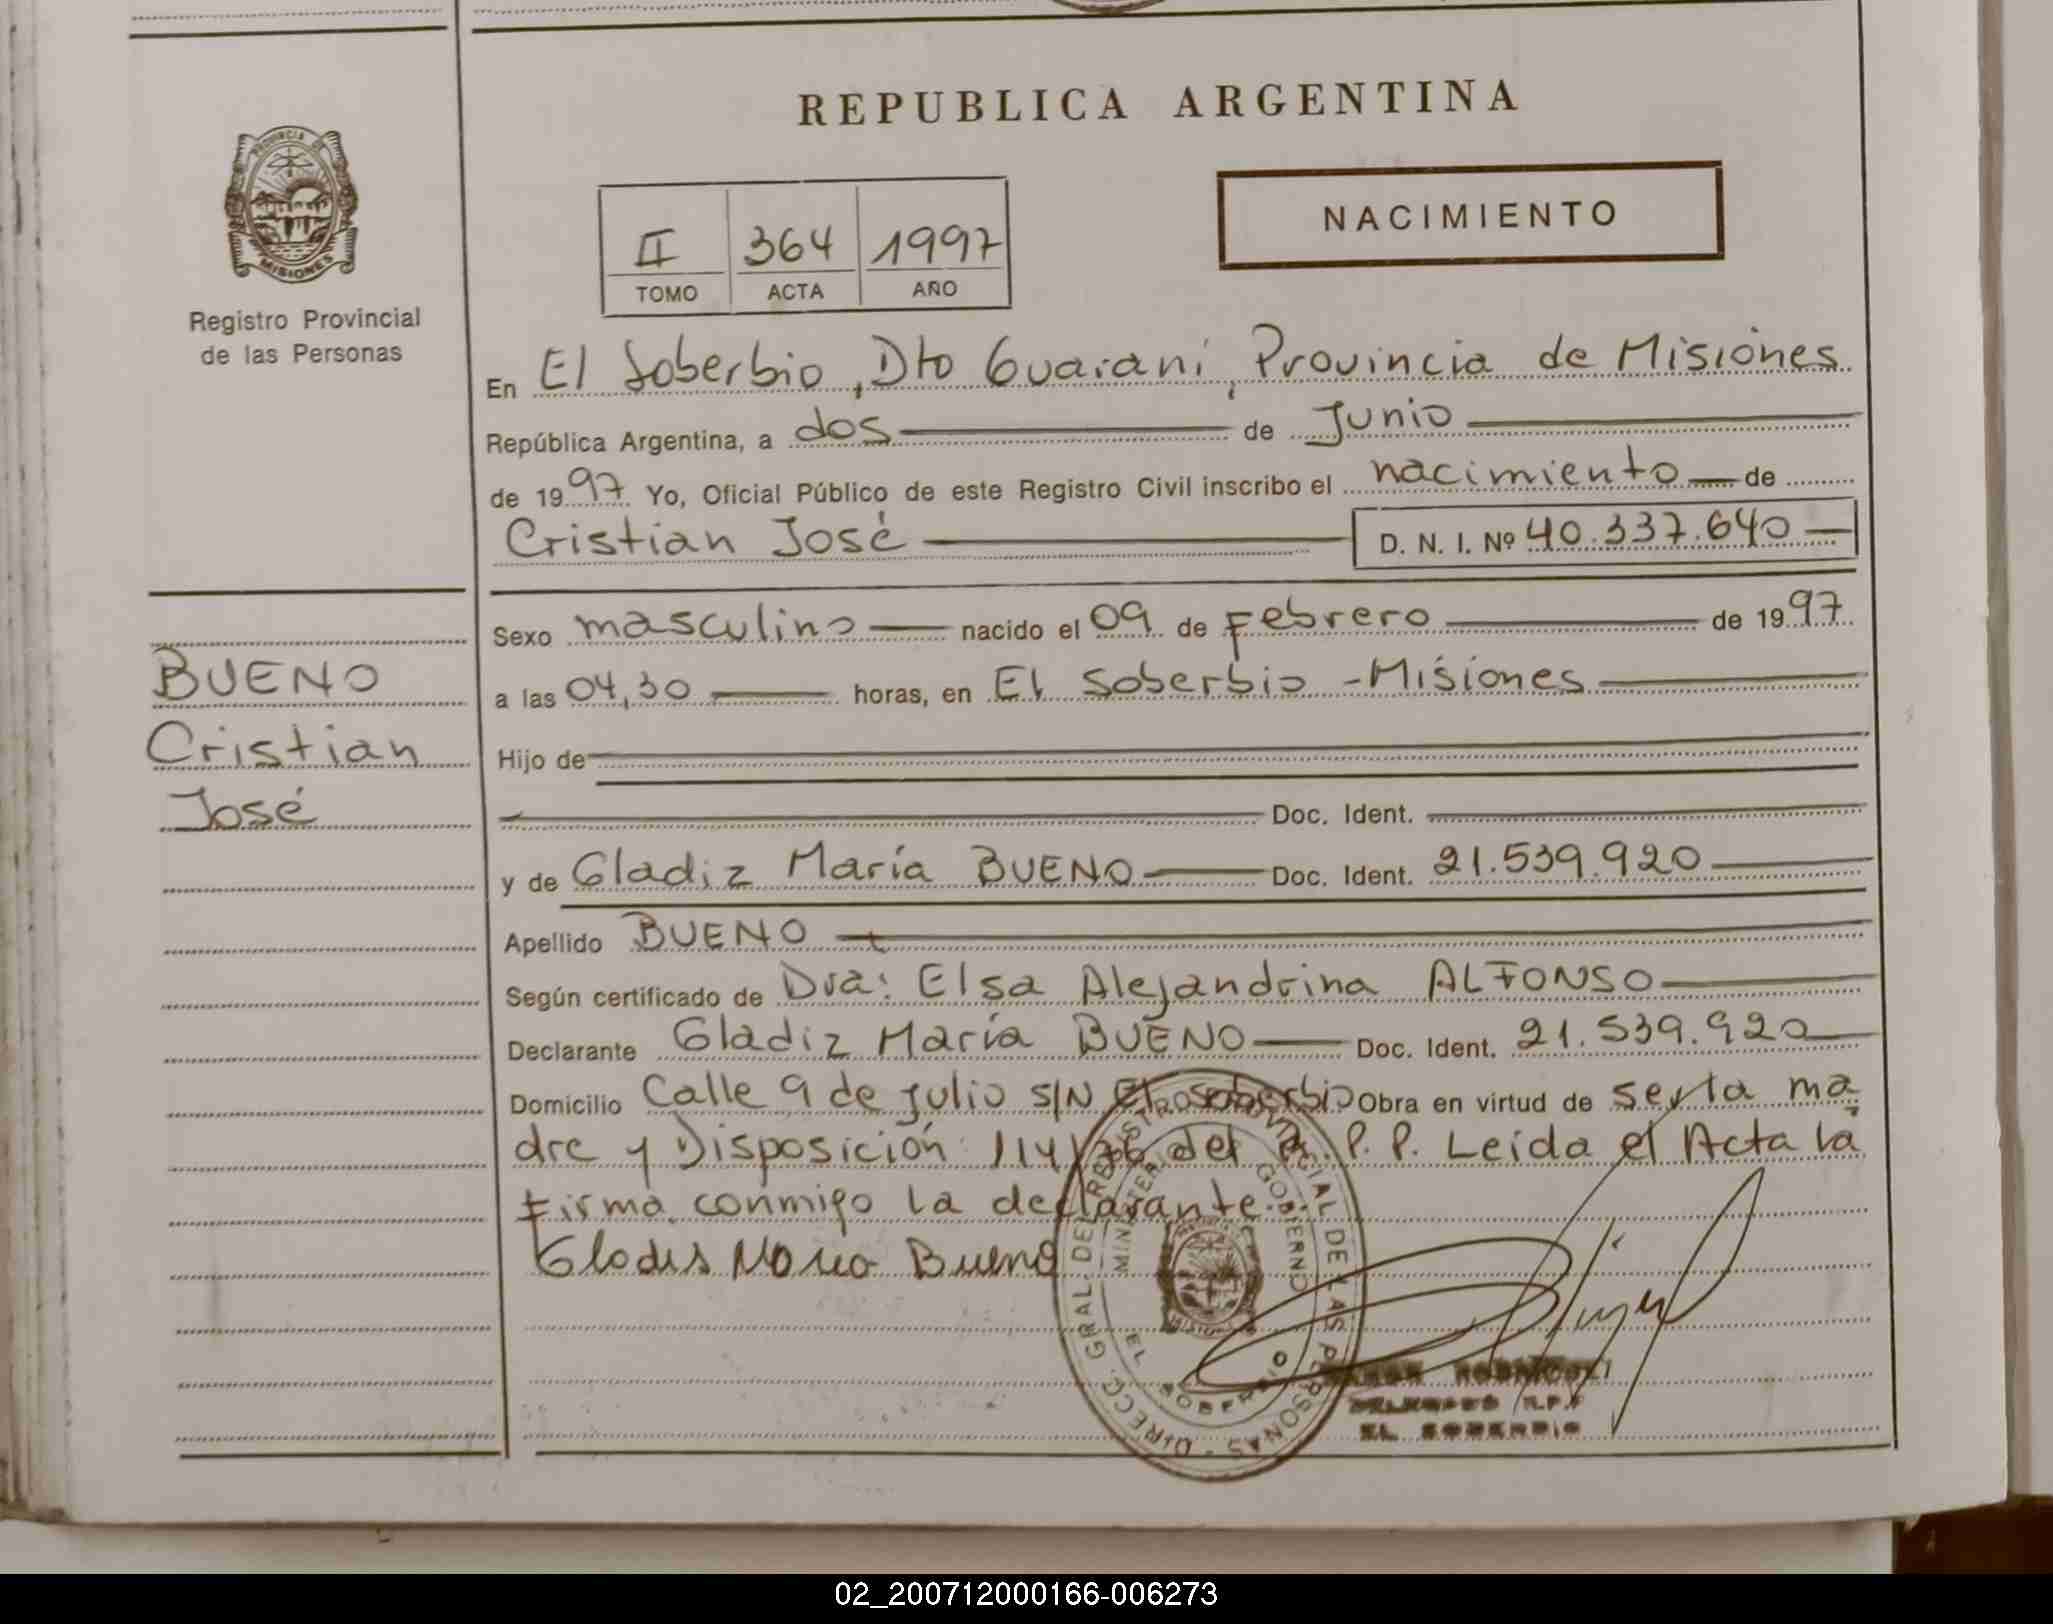 REPUBLICA ARGENTINA
PROVINCIA DE
MISIONES
Registro Provincial
de las Personas
NACIMIENTO
II 364 1997
TOMO ACTA AÑO
En El Soberbio, Dto Guaraní, Provincia de Misiones
República Argentina, a dos de Junio
de 1997 Yo, Oficial Público de este Registro Civil inscribo el nacimiento de
Cristian José D. N. I. Nº 40.337.640
Sexo masculino nacido el 09 de Febrero de 1997
a las 04,30 horas, en El Soberbio - Misiones
BUENO
Cristian
José
Hijo de
Doc. Ident.
y de Gladiz María BUENO Doc. Ident. 21.539.920
Apellido BUENO
Según certificado de Dra: Elsa Alejandrina ALFONSO
Declarante Gladiz María BUENO Doc. Ident. 21.539.920
Domicilio Calle 9 de julio S/N El soberbio Obra en virtud de ser la ma
dre y Disposición 114/76 del R. P. P. Leída el Acta la
Firma conmigo la declarante.
Gladis Maria Bueno
DIRECC. GRAL. DEL REGISTRO PROVINCIAL DE LAS PERSONAS
MINISTERIO GOBIERNO
EL SOBERBIO
DELEGADO R.P.P
EL SOBERBIO
02_200712000166-006273